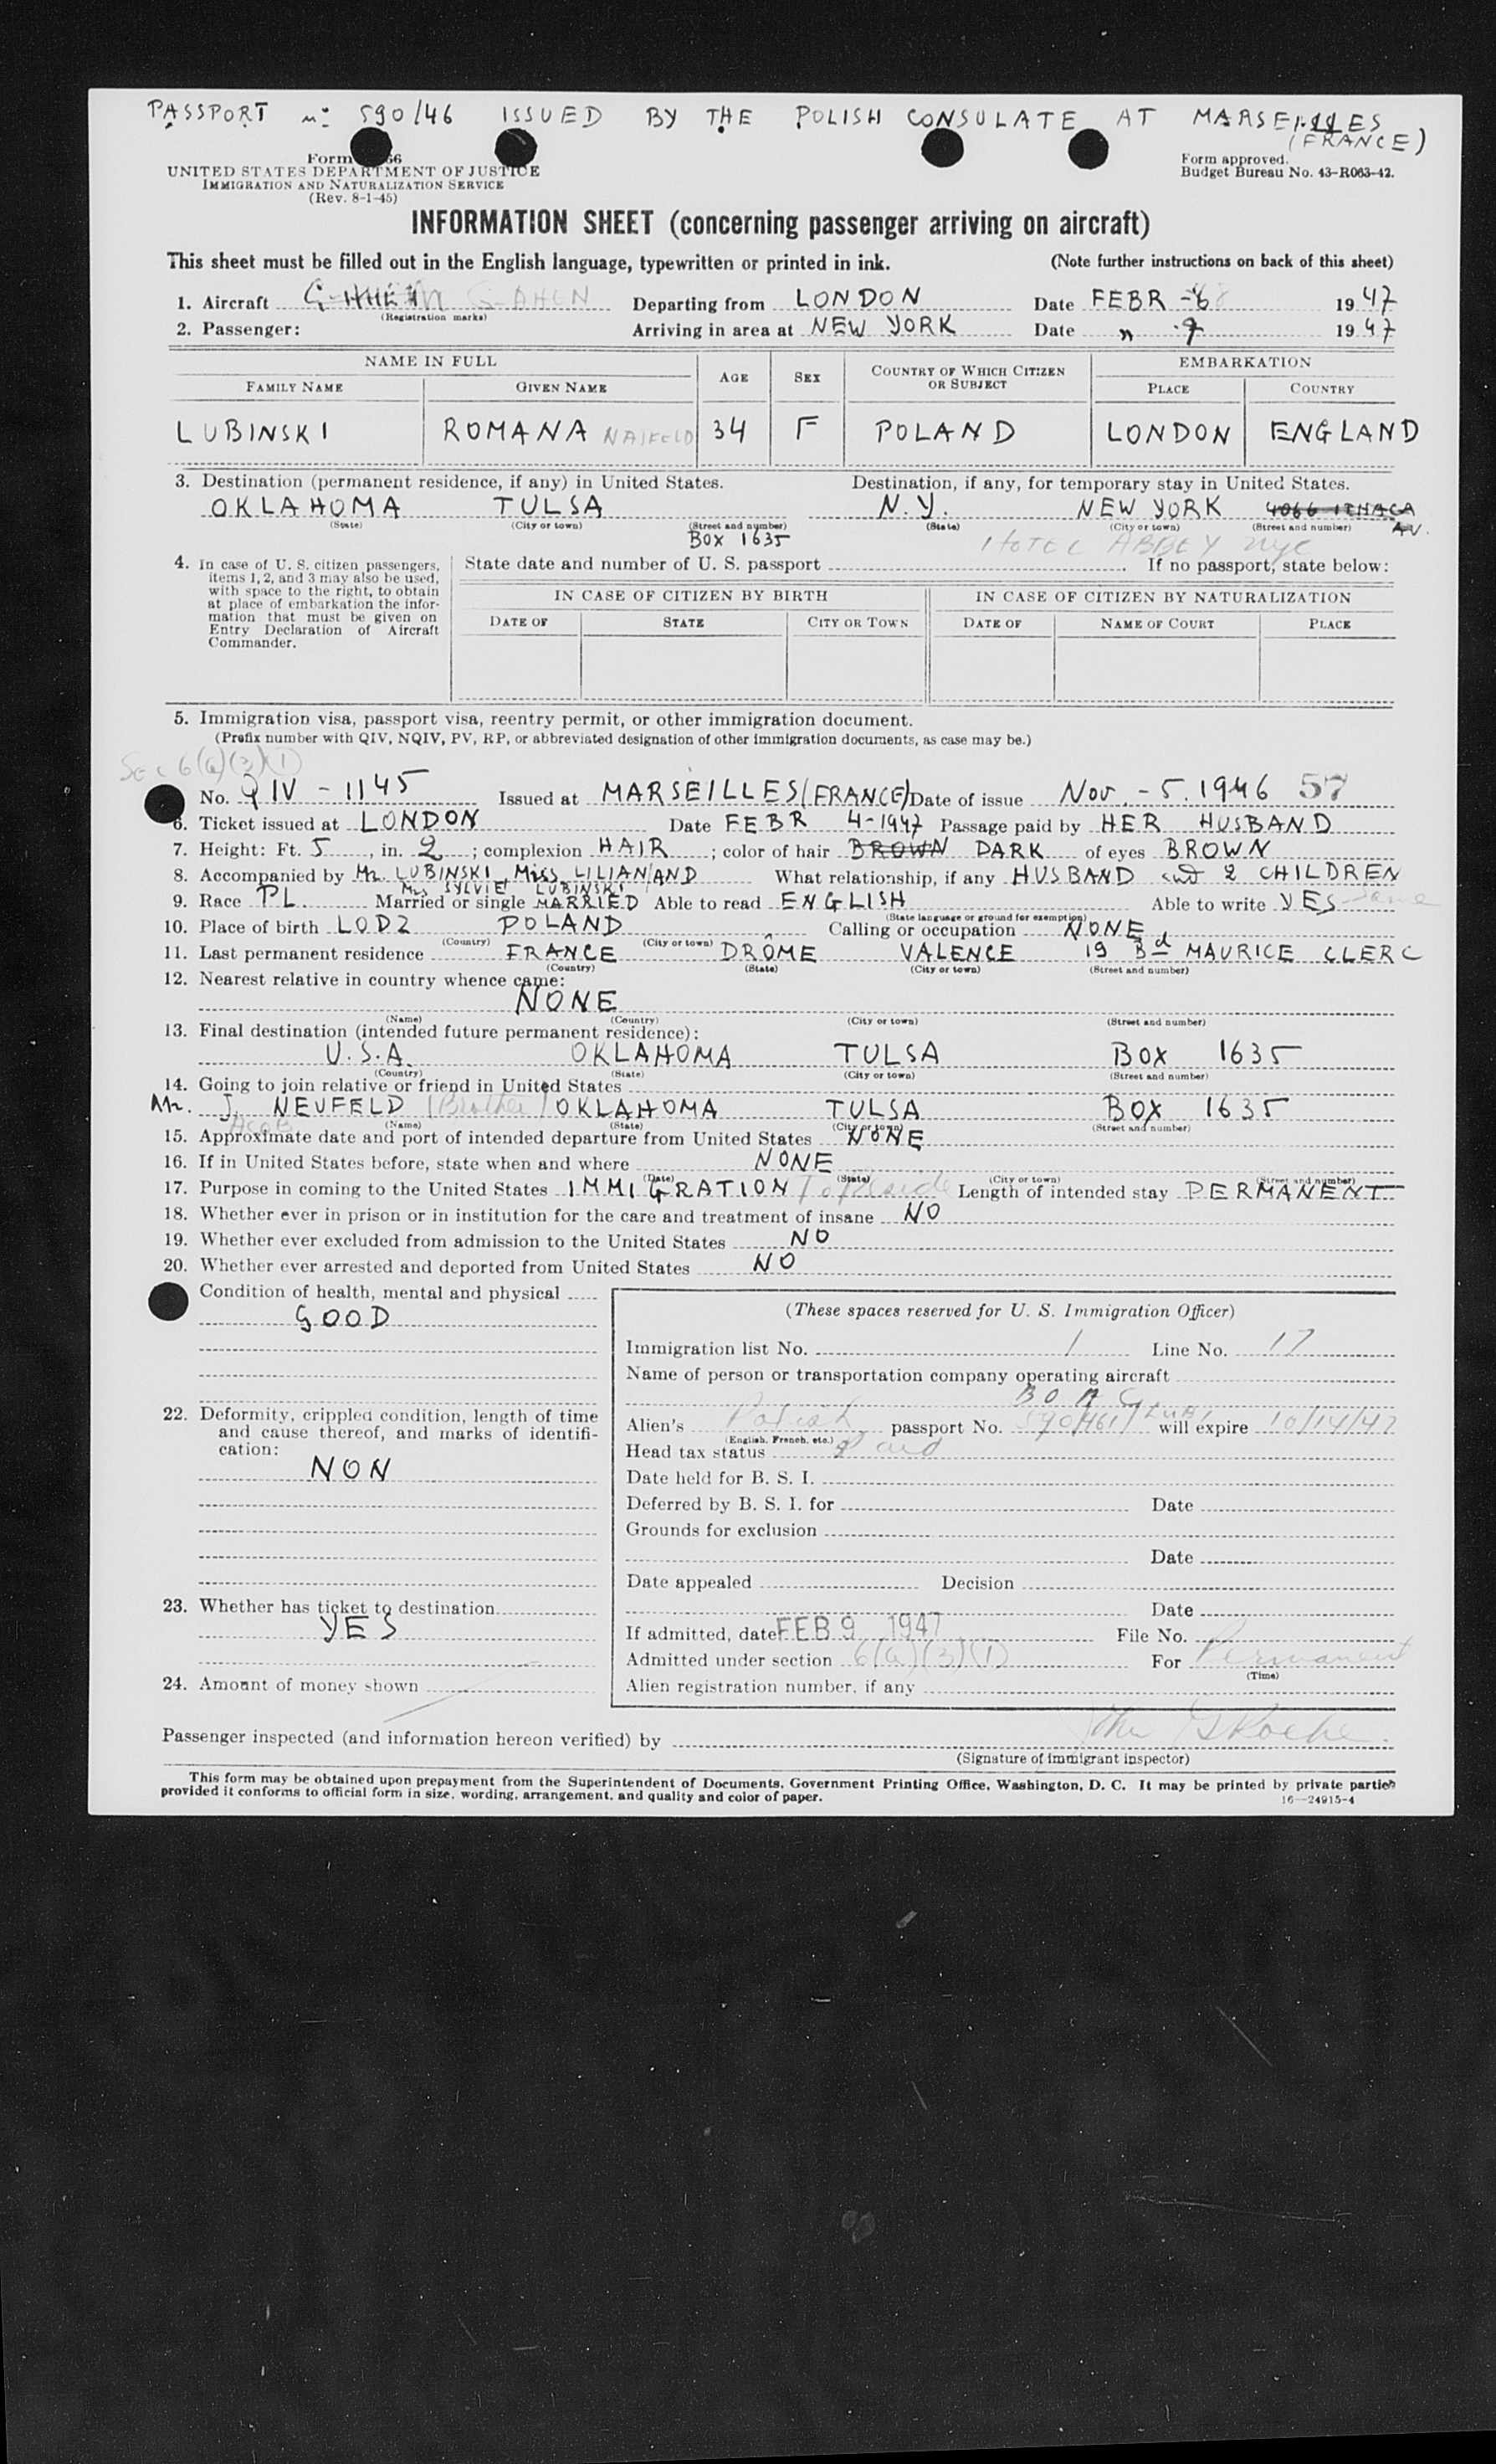 PASSPORT nº 590/46 ISSUED BY THE POLISH CONSULATE AT MARSEILLES
(FRANCE)
Form 66
UNITED STATES DEPARTMENT OF JUSTICE
IMMIGRATION AND NATURALIZATION SERVICE
(Rev. 8-1-45)
Form approved.
Budget Bureau No. 43-R063-42.
INFORMATION SHEET (concerning passenger arriving on aircraft)
This sheet must be filled out in the English language, typewritten or printed in ink. (Note further instructions on back of this sheet)
1. Aircraft G-AHEN Departing from LONDON Date FEBR - 8 1947
(Registration marks)
2. Passenger: Arriving in area at NEW YORK Date " 9 1947
NAME IN FULL AGE SEX COUNTRY OF WHICH CITIZEN OR SUBJECT EMBARKATION
FAMILY NAME GIVEN NAME PLACE COUNTRY
LUBINSKI ROMANA NAIFELD 34 F POLAND LONDON ENGLAND
3. Destination (permanent residence, if any) in United States. Destination, if any, for temporary stay in United States.
OKLAHOMA TULSA N.Y. NEW YORK 4066 ITHACA AV.
(State) (City or town) (Street and number) (State) (City or town) (Street and number)
BOX 1635 HOTEL ABBEY NYC
4. In case of U. S. citizen passengers, items 1, 2, and 3 may also be used, with space to the right, to obtain at place of embarkation the information that must be given on Entry Declaration of Aircraft Commander.
State date and number of U. S. passport . If no passport, state below:
IN CASE OF CITIZEN BY BIRTH IN CASE OF CITIZEN BY NATURALIZATION
DATE OF STATE CITY OR TOWN DATE OF NAME OF COURT PLACE
5. Immigration visa, passport visa, reentry permit, or other immigration document.
(Prefix number with QIV, NQIV, PV, RP, or abbreviated designation of other immigration documents, as case may be.)
Sec 6(a)(3)(1)
No. QIV - 1145 Issued at MARSEILLES (FRANCE) Date of issue Nov. - 5. 1946 57
6. Ticket issued at LONDON Date FEBR 4-1947 Passage paid by HER HUSBAND
7. Height: Ft. 5, in. 2; complexion HAIR; color of hair BROWN DARK of eyes BROWN
8. Accompanied by Mr. LUBINSKI, Miss LILIAN AND What relationship, if any HUSBAND and 2 CHILDREN
Mrs SYLVIE LUBINSKI
9. Race PL. Married or single MARRIED Able to read ENGLISH Able to write YES - Same
(State language or ground for exemption)
10. Place of birth LODZ POLAND Calling or occupation NONE
(Country) (City or town)
11. Last permanent residence FRANCE DRÔME VALENCE 19 Bd MAURICE CLERC
(Country) (State) (City or town) (Street and number)
12. Nearest relative in country whence came:
NONE
(Name) (Country) (City or town) (Street and number)
13. Final destination (intended future permanent residence):
U.S.A. OKLAHOMA TULSA BOX 1635
(Country) (State) (City or town) (Street and number)
14. Going to join relative or friend in United States
Mr. J. NEUFELD (Brother) OKLAHOMA TULSA BOX 1635
(Name) (State) (City or town) (Street and number)
15. Approximate date and port of intended departure from United States NONE
16. If in United States before, state when and where NONE
(Date) (State) (City or town) (Street and number)
17. Purpose in coming to the United States IMMIGRATION To Reside Length of intended stay PERMANENT
18. Whether ever in prison or in institution for the care and treatment of insane NO
19. Whether ever excluded from admission to the United States NO
20. Whether ever arrested and deported from United States NO
Condition of health, mental and physical
GOOD
22. Deformity, crippled condition, length of time and cause thereof, and marks of identification:
NON
23. Whether has ticket to destination
YES
24. Amount of money shown
(These spaces reserved for U. S. Immigration Officer)
Immigration list No. 1 Line No. 17
Name of person or transportation company operating aircraft
BOAC
Alien's Polish passport No. 590/46 will expire 10/14/47
(English, French, etc.)
Head tax status Paid
Date held for B. S. I.
Deferred by B. S. I. for Date
Grounds for exclusion
Date
Date appealed Decision
Date
If admitted, date FEB 9 1947 File No.
Admitted under section 6(a)(3)(1) For Permanent
(Time)
Alien registration number, if any
Passenger inspected (and information hereon verified) by John G Roche
(Signature of immigrant inspector)
This form may be obtained upon prepayment from the Superintendent of Documents, Government Printing Office, Washington, D. C. It may be printed by private parties
provided it conforms to official form in size, wording, arrangement, and quality and color of paper.
16—24915-4